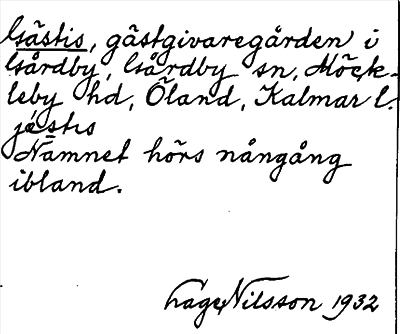 Gästis, gästgivaregården i
Gårdby, Gårdby sn, Möck-
leby hd, Öland, Kalmar l.
jästis
Namnet hörs nångång
ibland.
Lage Nilsson 1932